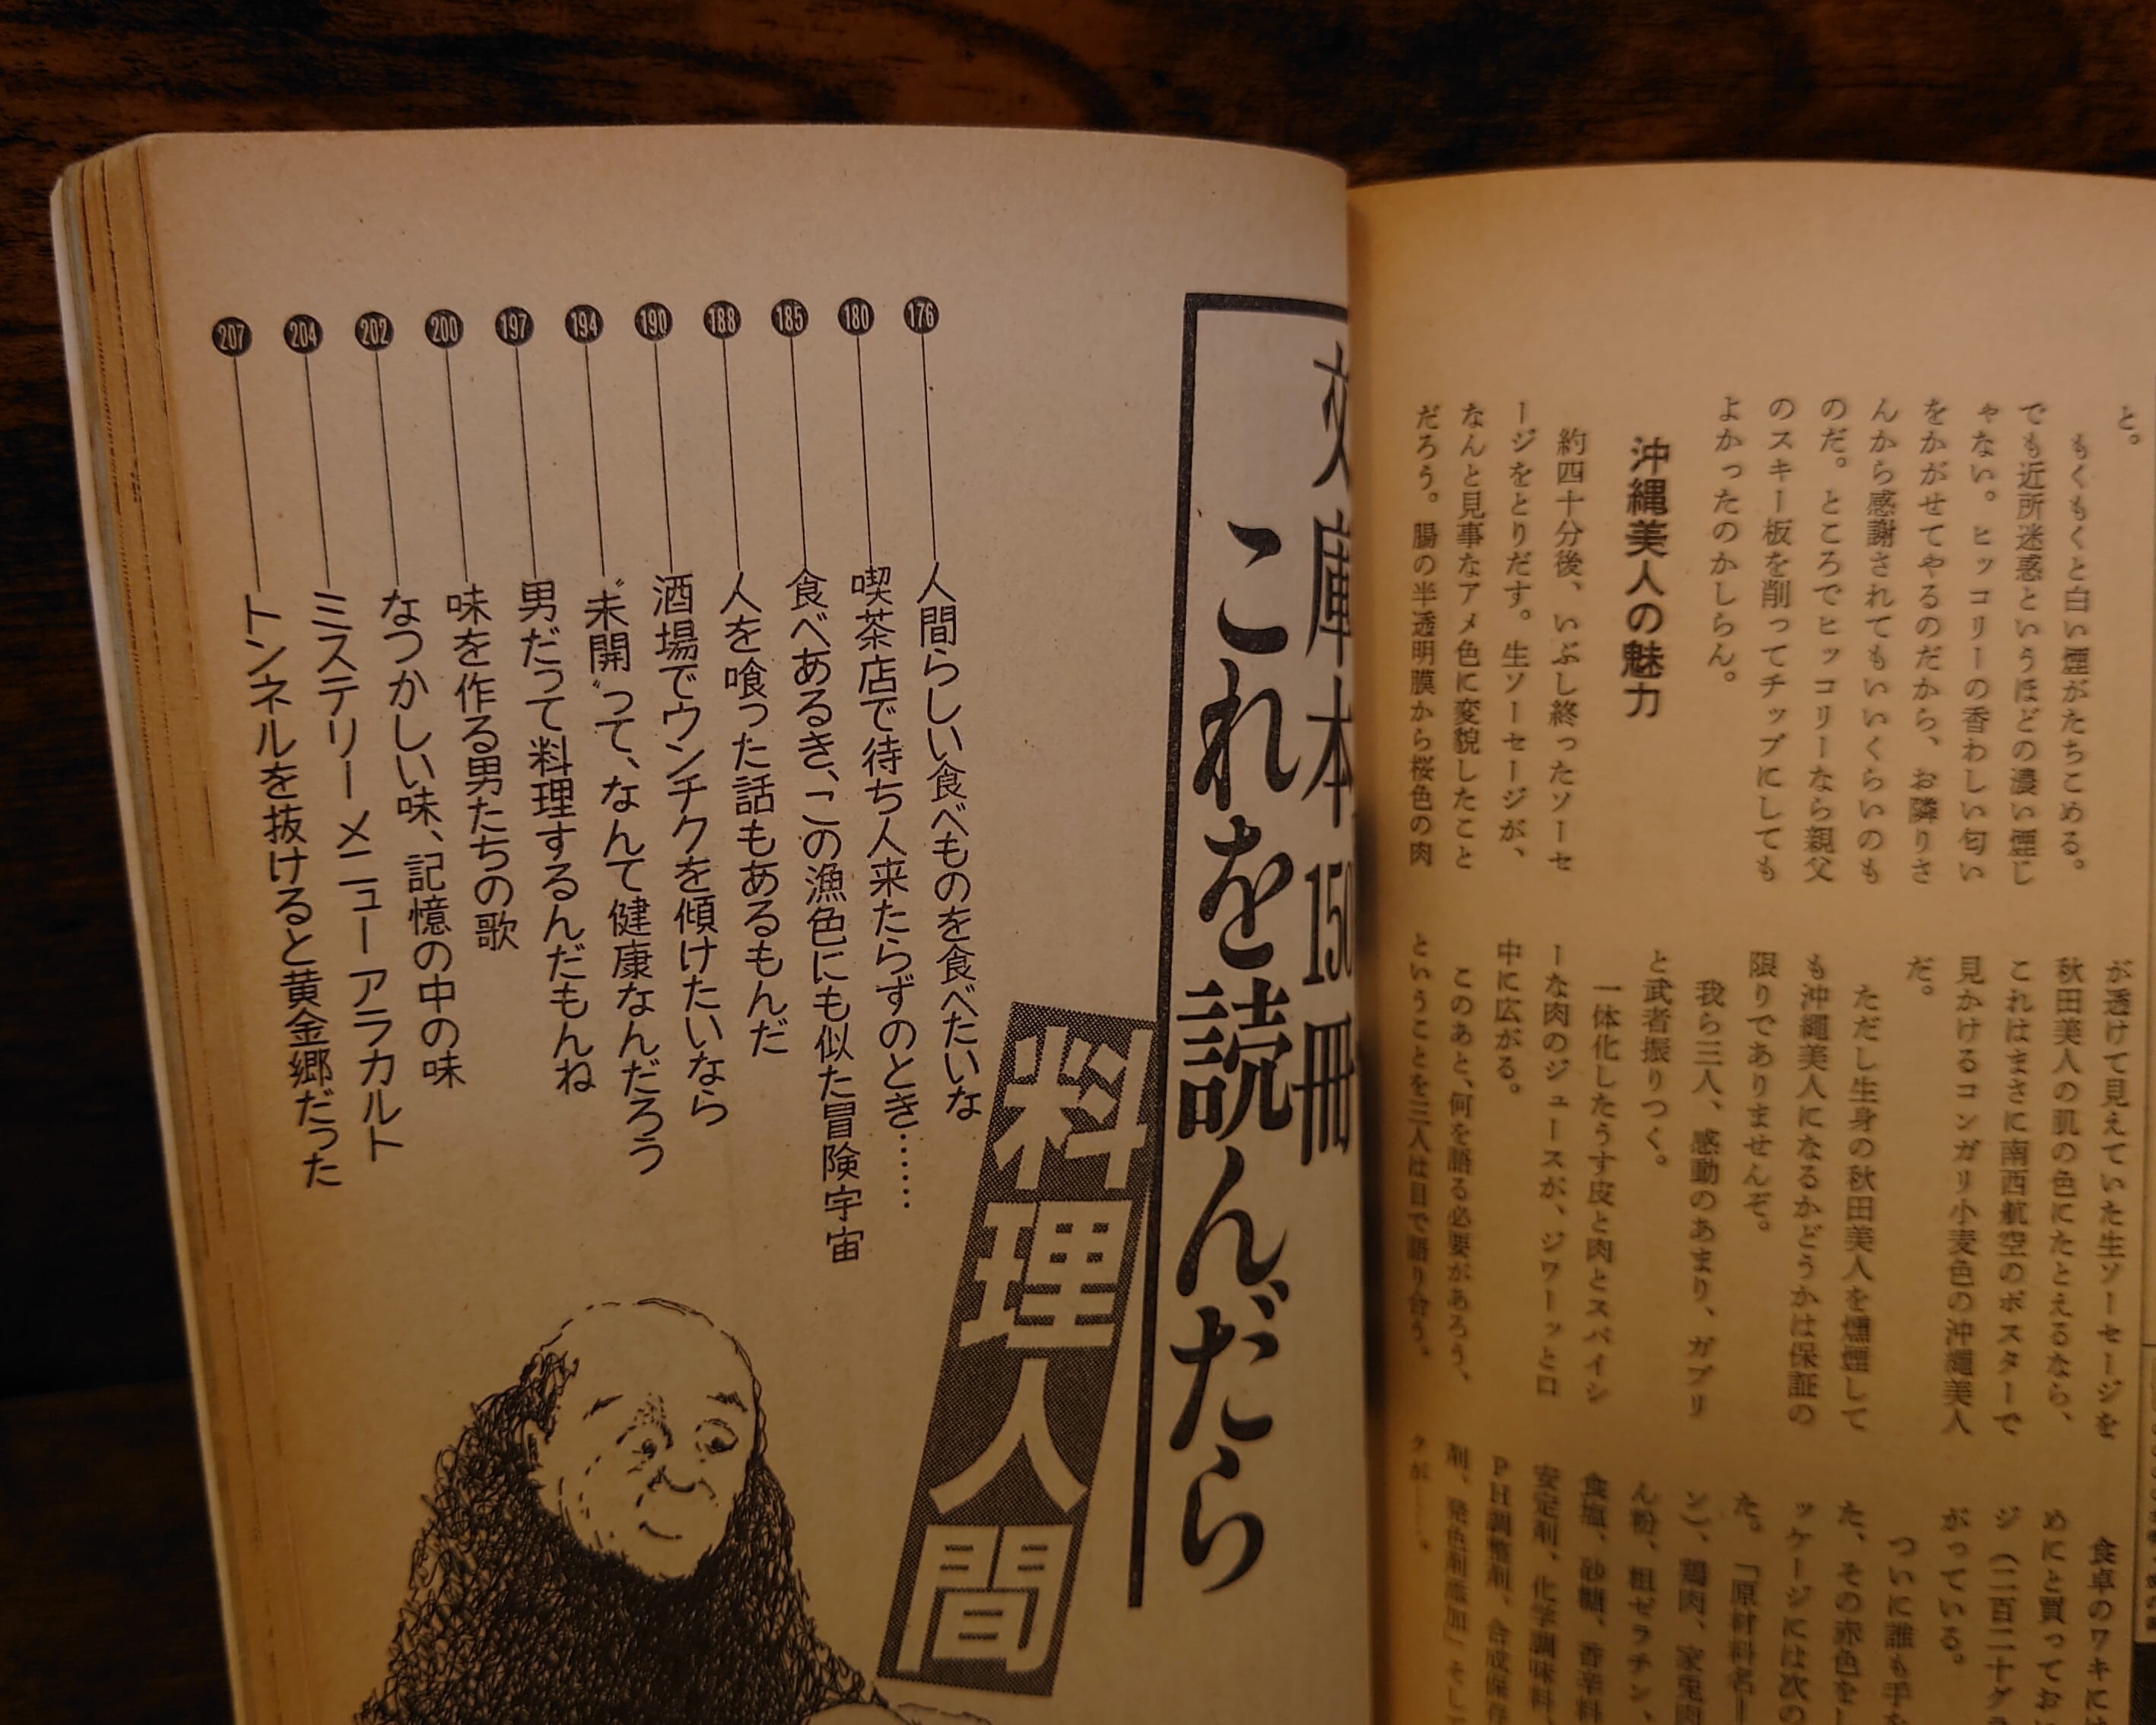 と。
もくもくと白い煙がたちこめる。
でも近所迷惑というほどの濃い煙じ
ゃない。ヒッコリーの香わしい匂い
をかがせてやるのだから、お隣りさ
んから感謝されてもいいくらいのも
のだ。ところでヒッコリーなら親父
のスキー板を削ってチップにしても
よかったのかしらん。
沖縄美人の魅力
約四十分後、いぶし終ったソーセ
ージをとりだす。生ソーセージが、
なんと見事なアメ色に変貌したこと
だろう。腸の半透明膜から桜色の肉
が透けて見えていた生ソーセージを
秋田美人の肌の色にたとえるなら、
これはまさに南西航空のポスターで
見かけるコンガリ小麦色の沖縄美人
だ。
ただし生身の秋田美人を燻煙して
も沖縄美人になるかどうかは保証の
限りでありませんぞ。
我ら三人、感動のあまり、ガブリ
と武者振りつく。
一体化したうす皮と肉とスパイシ
ーな肉のジュースが、ジワーッと口
中に広がる。
このあと、何を語る必要があろう、
ということを三人は目で語り合う。
食卓のワキには
めにと買ってお
ジ（二百二十グラ
がっている。
ついに誰も手を
た、その赤色をし
ッケージには次の
た。「原材料名―
ン）、鶏肉、家兎肉
ん粉、粗ゼラチン、
食塩、砂糖、香辛料
安定剤、化学調味料、
PH調整剤、合成保存
剤、発色剤添加」そし
文庫本150冊
これを読んだら
料理人間
176 人間らしい食べものを食べたいな
180 喫茶店で待ち人来たらずのとき……
185 食べあるき、この漁色にも似た冒険宇宙
188 人を喰った話もあるもんだ
190 酒場でウンチクを傾けたいなら
194 〝未開〟って、なんて健康なんだろう
197 男だって料理するんだもんね
200 味を作る男たちの歌
202 なつかしい味、記憶の中の味
204 ミステリーメニューアラカルト
207 トンネルを抜けると黄金郷だった